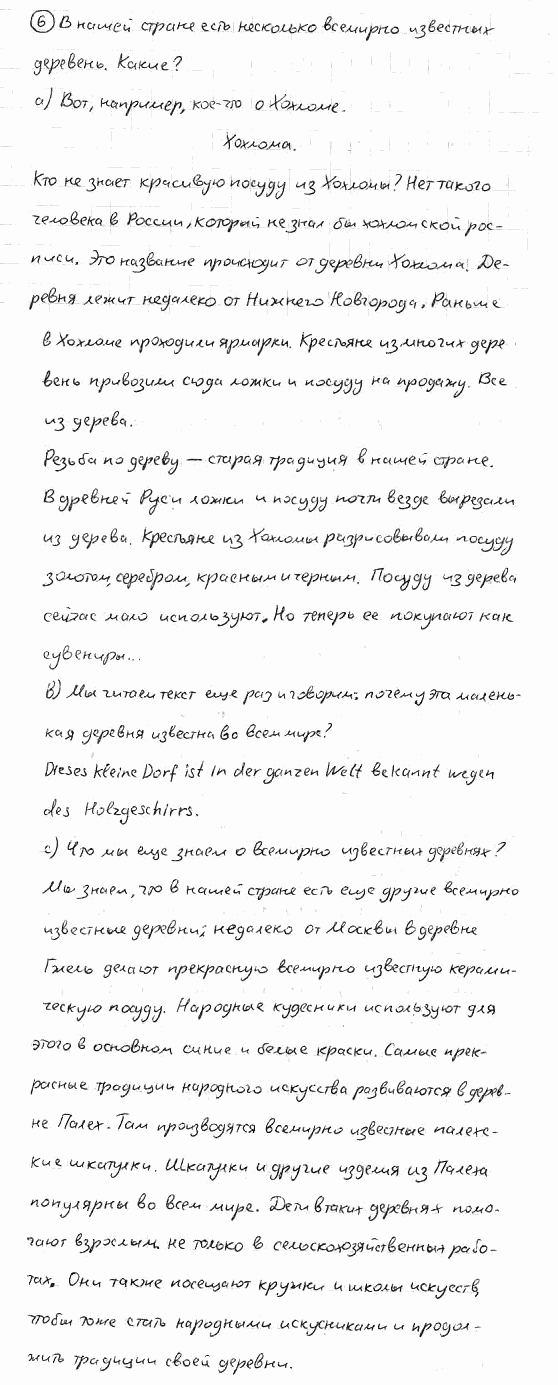 6 В нашей стране есть несколько всемирно известных
деревень. Какие?
а) Вот, например, кое-что о Хохломе.
Хохлома.
Кто не знает красивую посуду из Хохломы? Нет такого
человека в России, который не знал бы хохломской рос-
писи. Это название происходит от деревни Хохлома. Де-
ревня лежит недалеко от Нижнего Новгорода. Раньше
в Хохломе проходили ярмарки. Крестьяне из многих дере
вень привозили сюда ложки и посуду на продажу. Все
из дерева.
Резьба по дереву — старая традиция в нашей стране.
В древней Руси ложки и посуду почти везде вырезали
из дерева. Крестьяне из Хохломы разрисовывали посуду
золотом, серебром, красным и черным. Посуду из дерева
сейчас мало используют. Но теперь ее покупают как
сувениры...
b) Мы читаем текст еще раз и говорим: почему эта малень-
кая деревня известна во всем мире?
Dieses kleine Dorf ist in der ganzen Welt bekannt wegen
des Holzgeschirrs.
c) Что мы еще знаем о всемирно известных деревнях?
Мы знаем, что в нашей стране есть еще другие всемирно
известные деревни; недалеко от Москвы в деревне
Гжель делают прекрасную всемирно известную керами-
ческую посуду. Народные кудесники используют для
этого в основном синие и белые краски. Самые прек-
расные традиции народного искусства развиваются в дерев-
не Палех. Там производятся всемирно известные палехс-
кие шкатулки. Шкатулки и другие изделия из Палеха
популярны во всем мире. Дети в таких деревнях помо-
гают взрослым не только в сельскохозяйственных рабо-
тах. Они также посещают кружки и школы искусств,
чтобы тоже стать народными искусниками и продол-
жить традиции своей деревни.